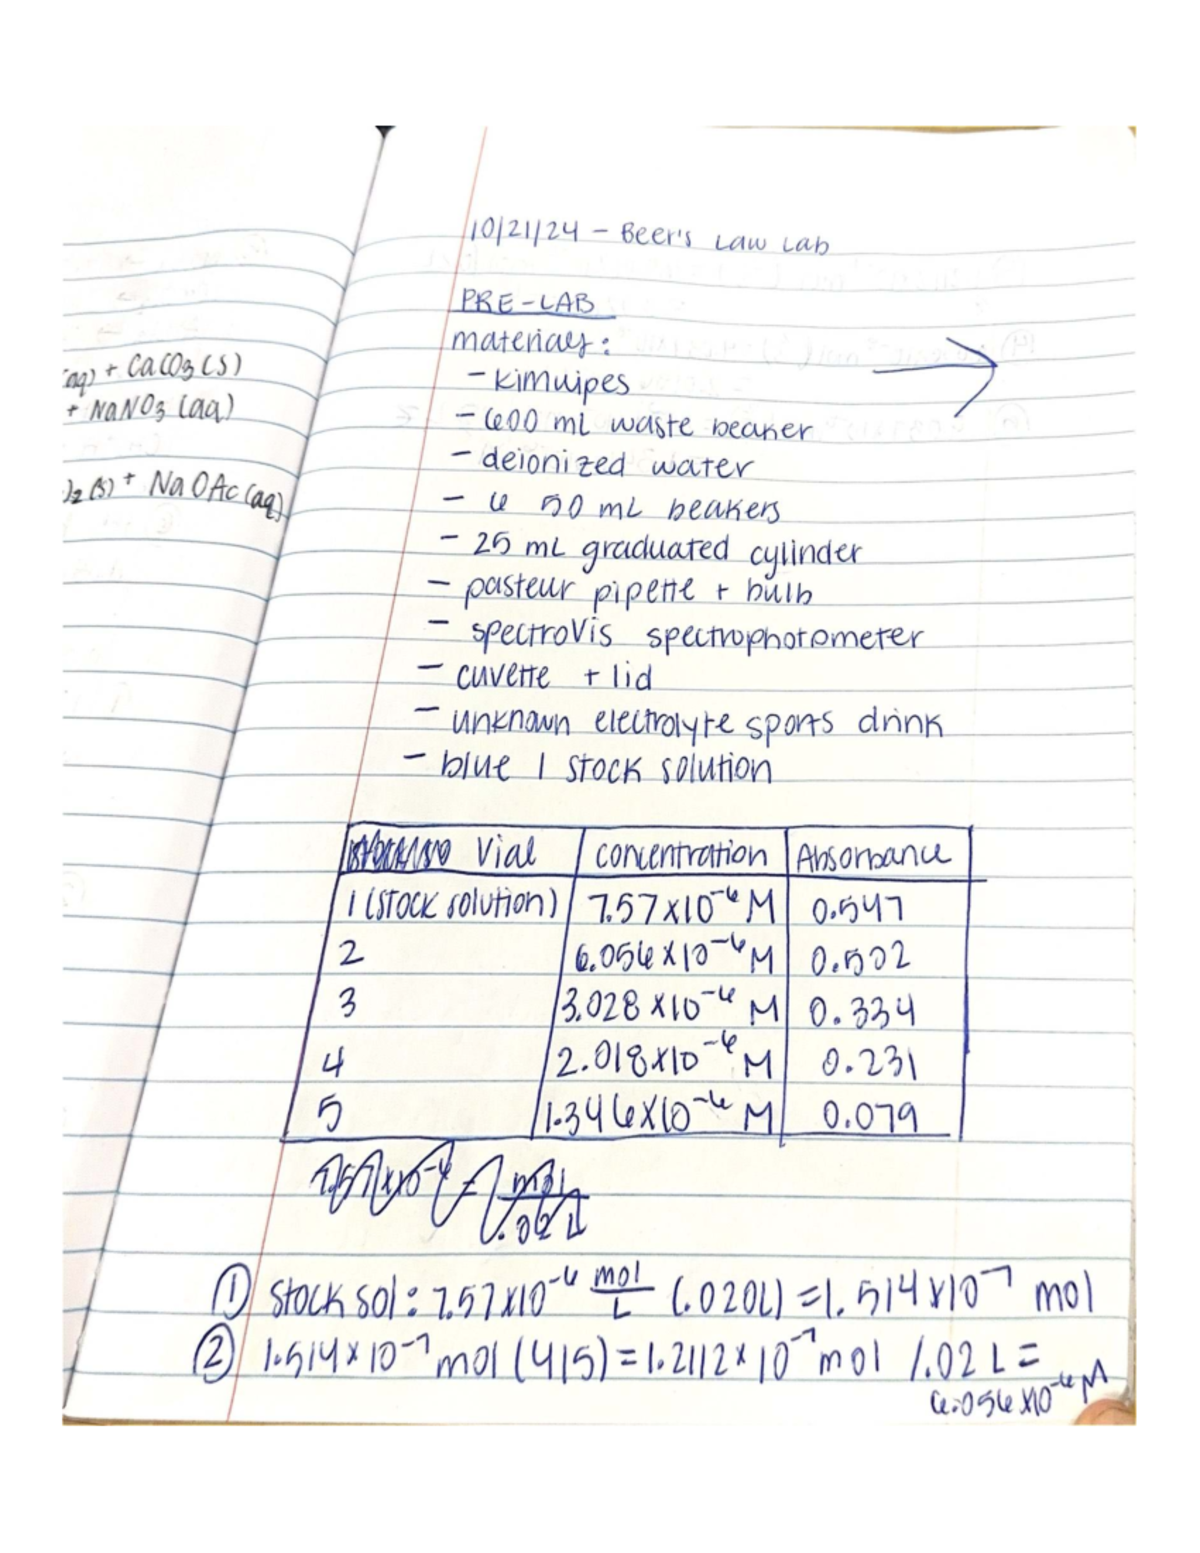 10/21/24 – Beer's Law Lab
PRE-LAB
materials:
- kimwipes
- 600 mL waste beaker
- deionized water
- 6 50 mL beakers
- 25 mL graduated cylinder
- pasteur pipette + bulb
- spectroVis spectrophotometer
- cuvette + lid
- unknown electrolyte sports drink
- blue 1 stock solution
(aq) + CaCO3 (s)
+ NaNO3 (aq)
)2 (s) + NaOAc (aq)
Vial | concentration | Absorbance
1 (stock solution) | 7.57x10⁻⁶ M | 0.547
2 | 6.056 x 10⁻⁶ M | 0.502
3 | 3.028 x10⁻⁶ M | 0.334
4 | 2.018x10⁻⁶ M | 0.231
5 | 1.346x10⁻⁶ M | 0.079
① stock sol: 7.57x10⁻⁶ mol/L (.020L) = 1.514x10⁻⁷ mol
② 1.514 x 10⁻⁷ mol (4/5) = 1.2112 x 10⁻⁷ mol /.02 L =
6.056 x10⁻⁶ M